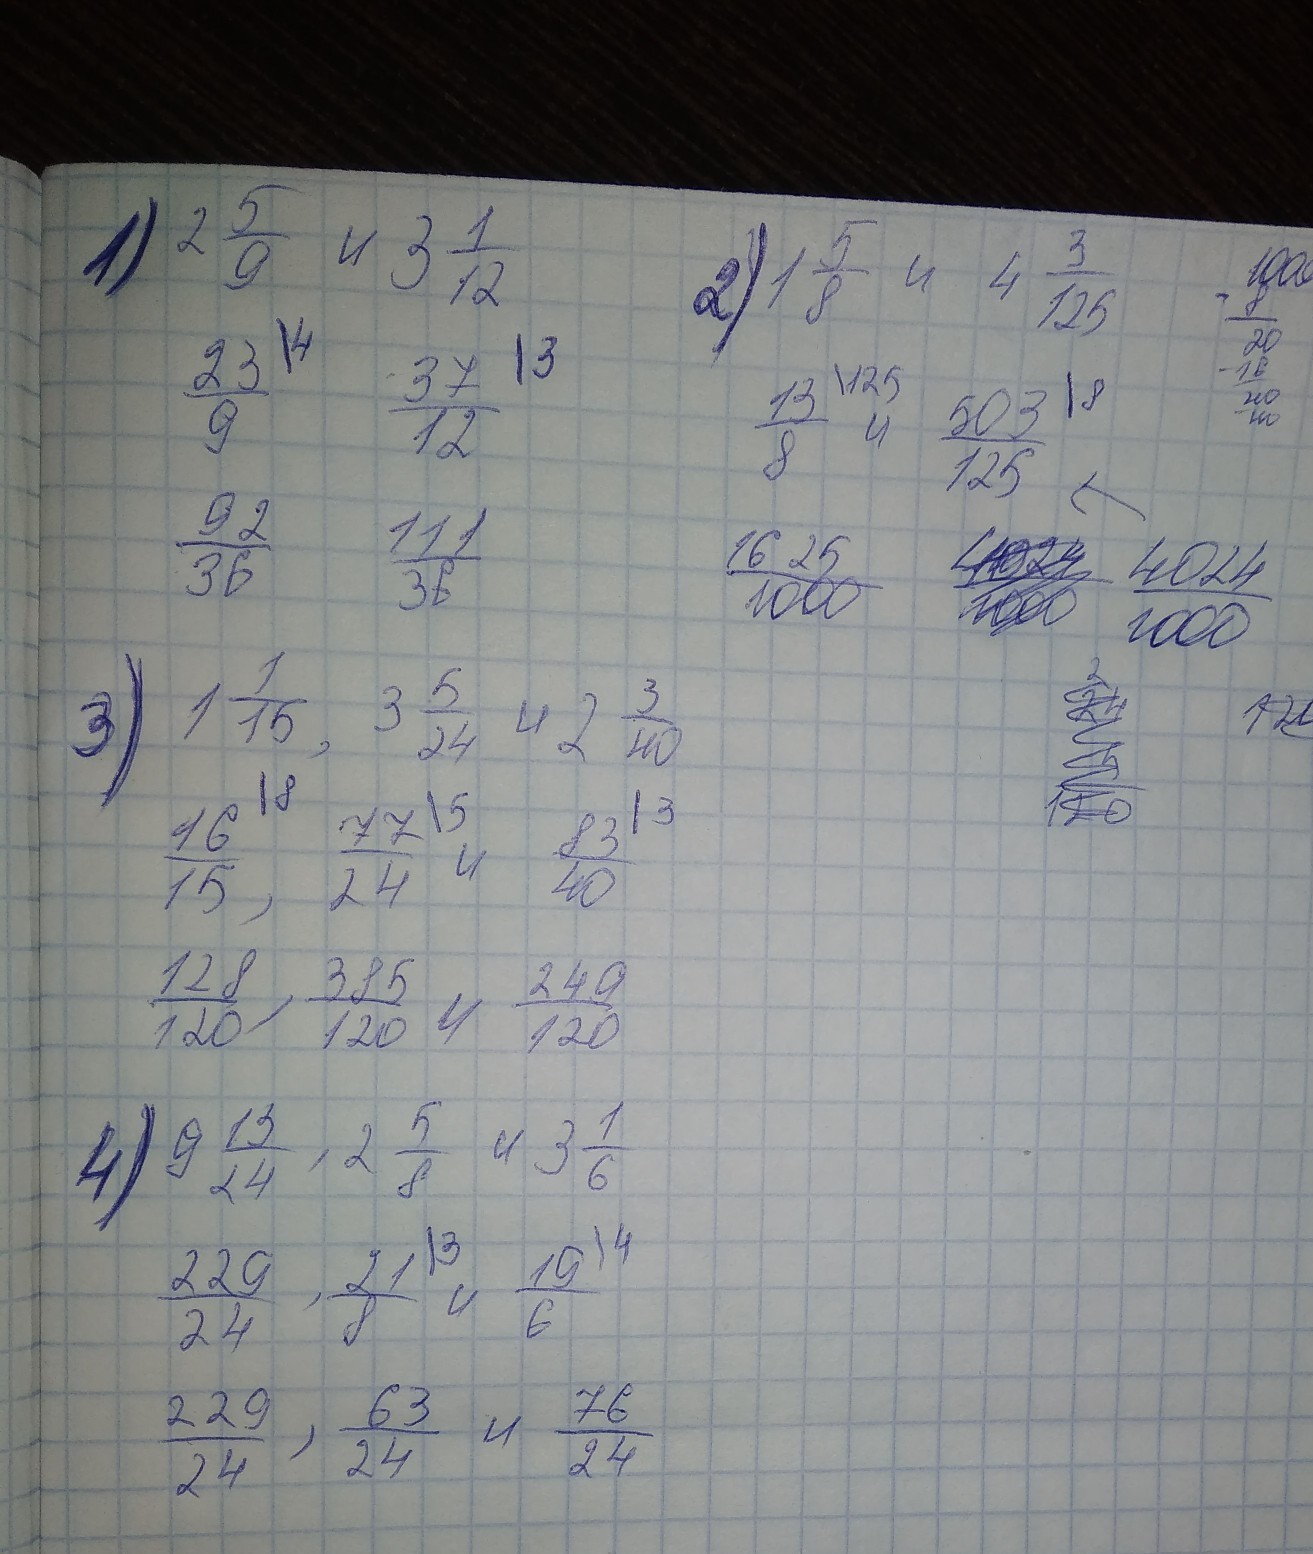 1) 2 5/9 и 3 1/12
23/9 \4 37/12 \3
92/36 111/36
2) 1 5/8 и 4 3/125
13/8 \125 и 503/125 \8
1625/1000 4024/1000
1000
- 8
20
- 16
40
40
3) 1 1/15, 3 5/24 и 2 3/40
16/15 \8, 77/24 \5 и 83/40 \3
128/120, 385/120 и 249/120
120
4) 9 13/24, 2 5/8 и 3 1/6
229/24, 21/8 \3 и 19/6 \4
229/24, 63/24 и 76/24